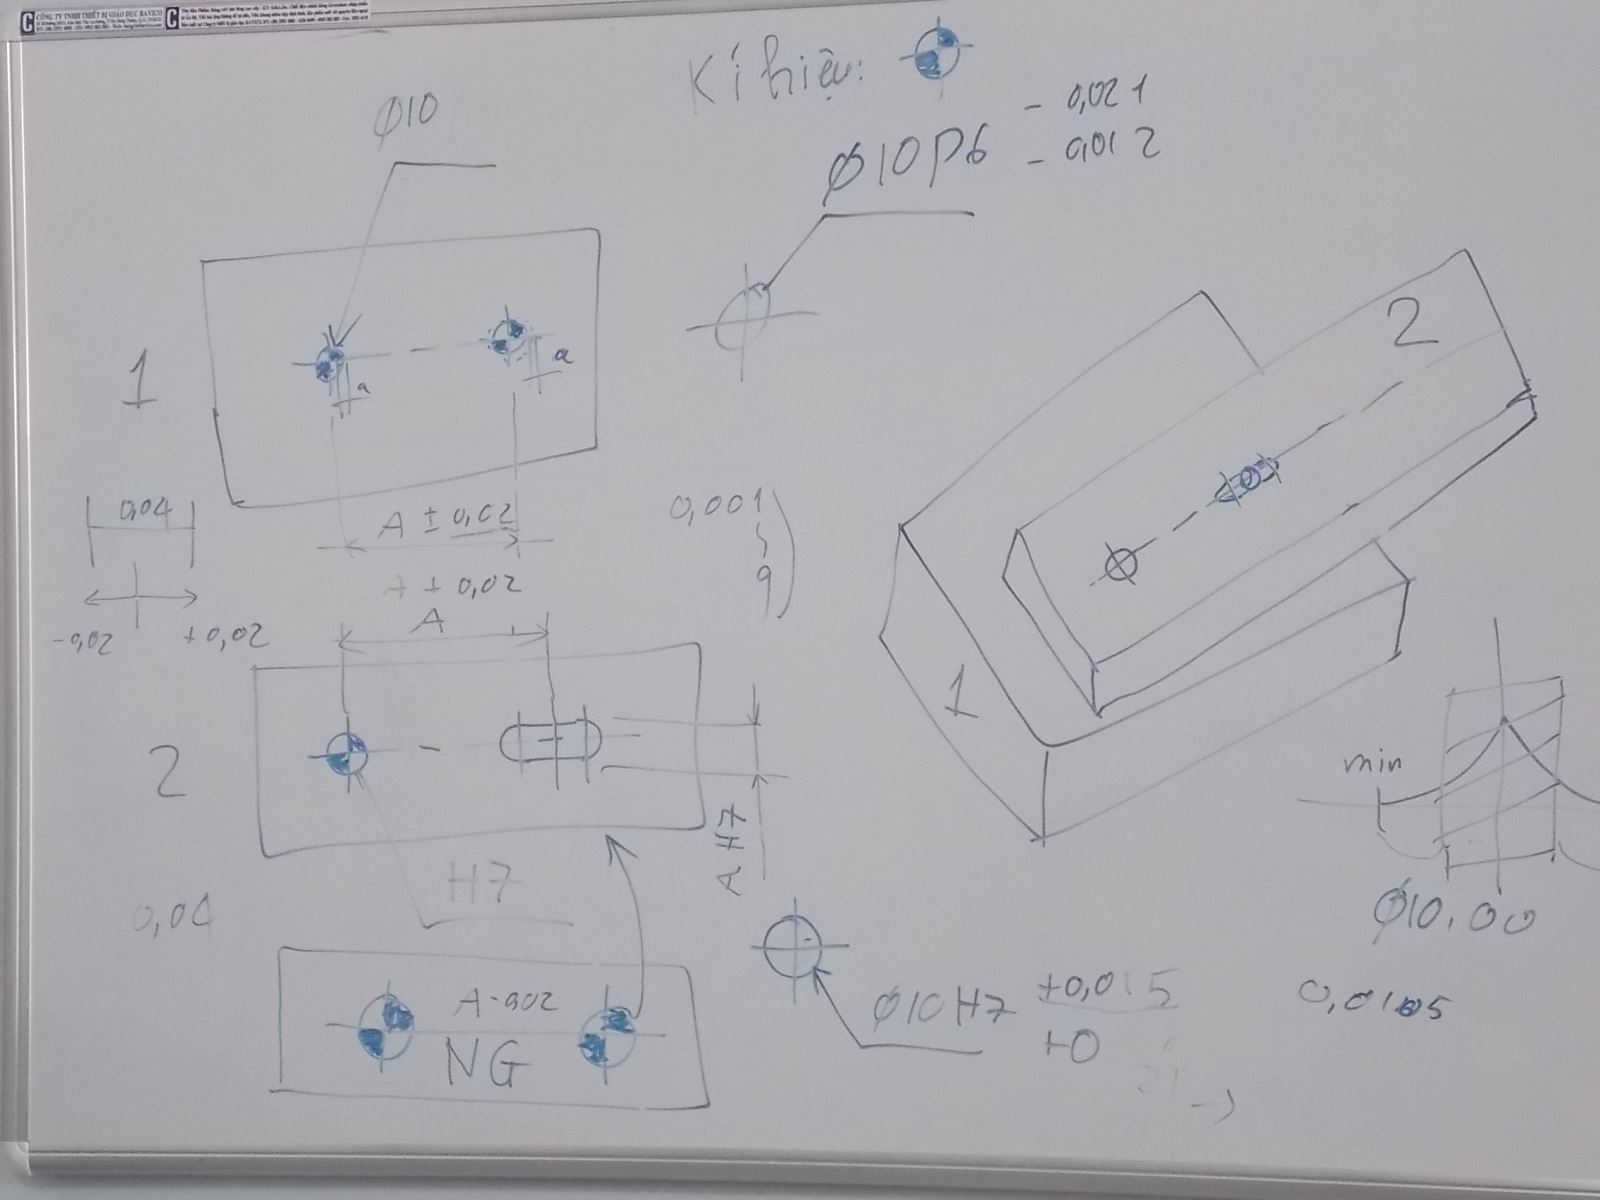 CÔNG TY TNHH THIẾT BỊ GIÁO DỤC BAVICO
Kí hiệu:
- 0,021
Ø10P6
- 0,012
Ø10
1
a
a
A ± 0,02
A ± 0,02
A
0,04
-0,02
+0,02
0,001
9
2
1
2
H7
A H7
0,04
A-0,02
NG
Ø10H7
+0,015
+0
min
Ø10,00